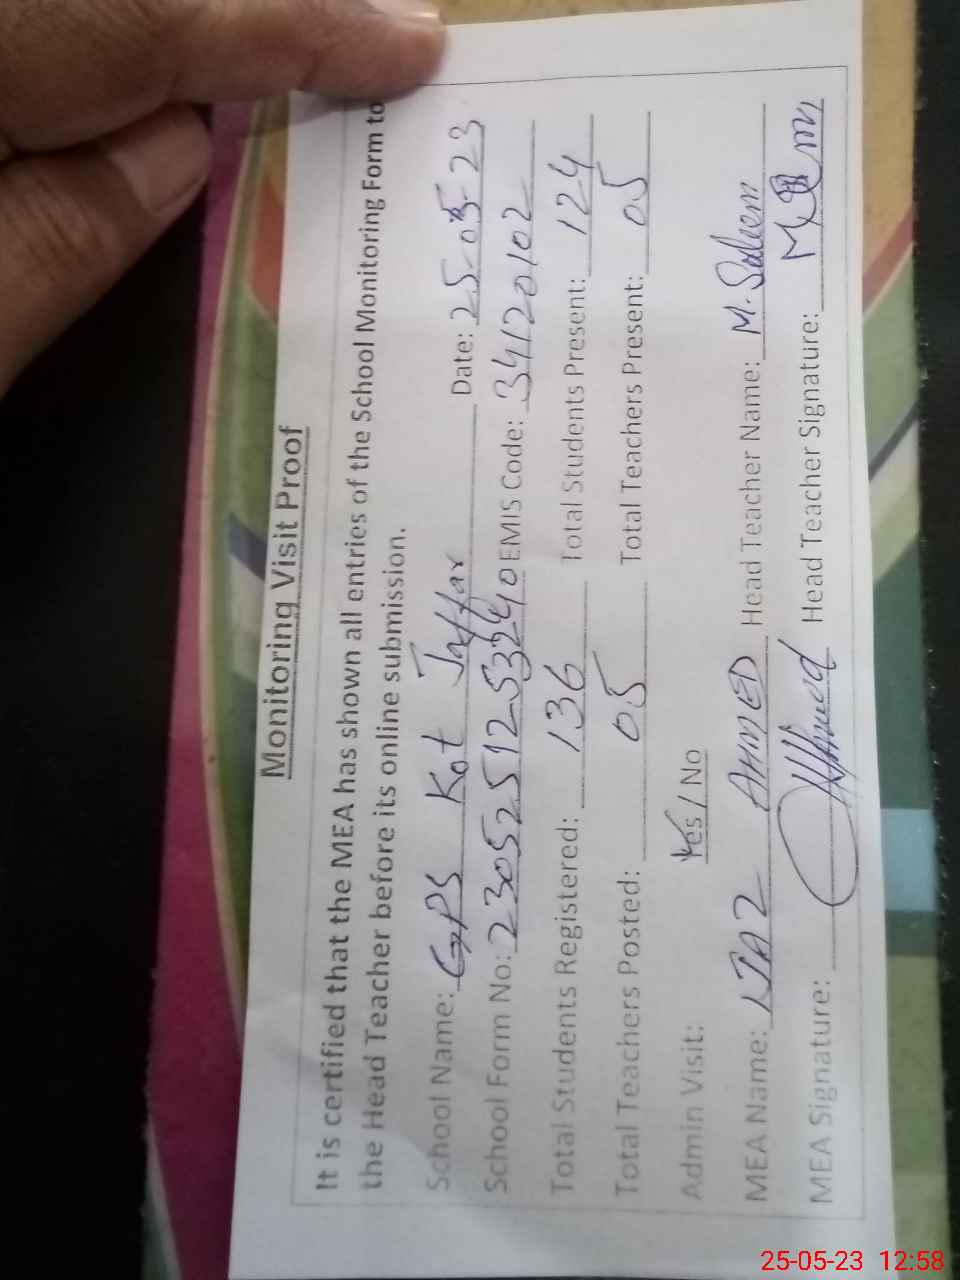 Monitoring Visit Proof
It is certified that the MEA has shown all entries of the School Monitoring Form to
the Head Teacher before its online submission.
School Name: GPS Kot Jaffar Date: 25-05-23
School Form No: 2305251253240 EMIS Code: 34120102
Total Students Registered: 136 Total Students Present: 124
Total Teachers Posted: 05 Total Teachers Present: 05
Admin Visit: Yes / No
MEA Name: IJAZ AHMED Head Teacher Name: M. Saleem
MEA Signature: Head Teacher Signature:
25-05-23 12:58